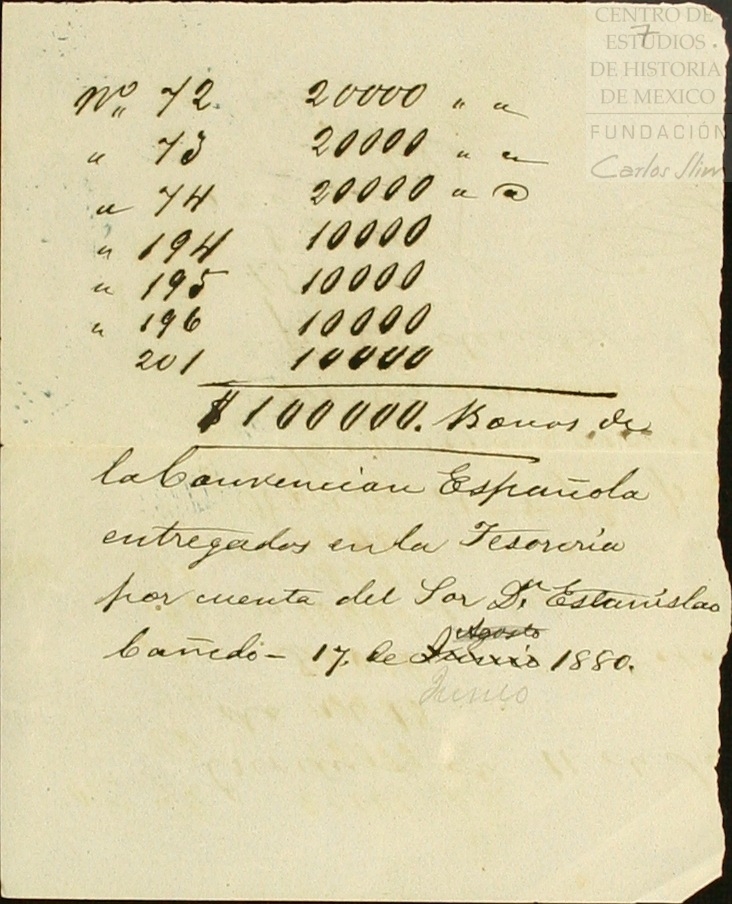 CENTRO DE
ESTUDIOS
DE HISTORIA
DE MEXICO
FUNDACIÓN
Carlos Slim
7
Nº 72 20000 " "
" 73 20000 " "
" 74 20000 " "
" 194 10000
" 195 10000
" 196 10000
201 10000
$100000. Bonos de
la Convencion Española
entregados en la Tesoreria
por cuenta del Sor Dn Estanislao
Cañedo - 17. de Junio Agosto 1880.
Junio